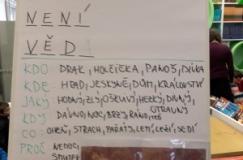 NENÍ
VĚD
KDO DRAK, HOLČIČKA, PANOŠ, DÍVKA
KDE HRAD, JESKYNĚ, DŮM, KRÁLOVSTVÍ
JAKÝ HODNÝ, ZLÝ, OŠKLIVÝ, HEZKÝ, DIVNÝ,
OTRAVNÝ
KDY DÁVNO, NOC, BRZY, RÁNO,
CO OHEŇ, STRACH, PAŘÁT, LETÍ, LEŽÍ, SEDÍ
PROČ